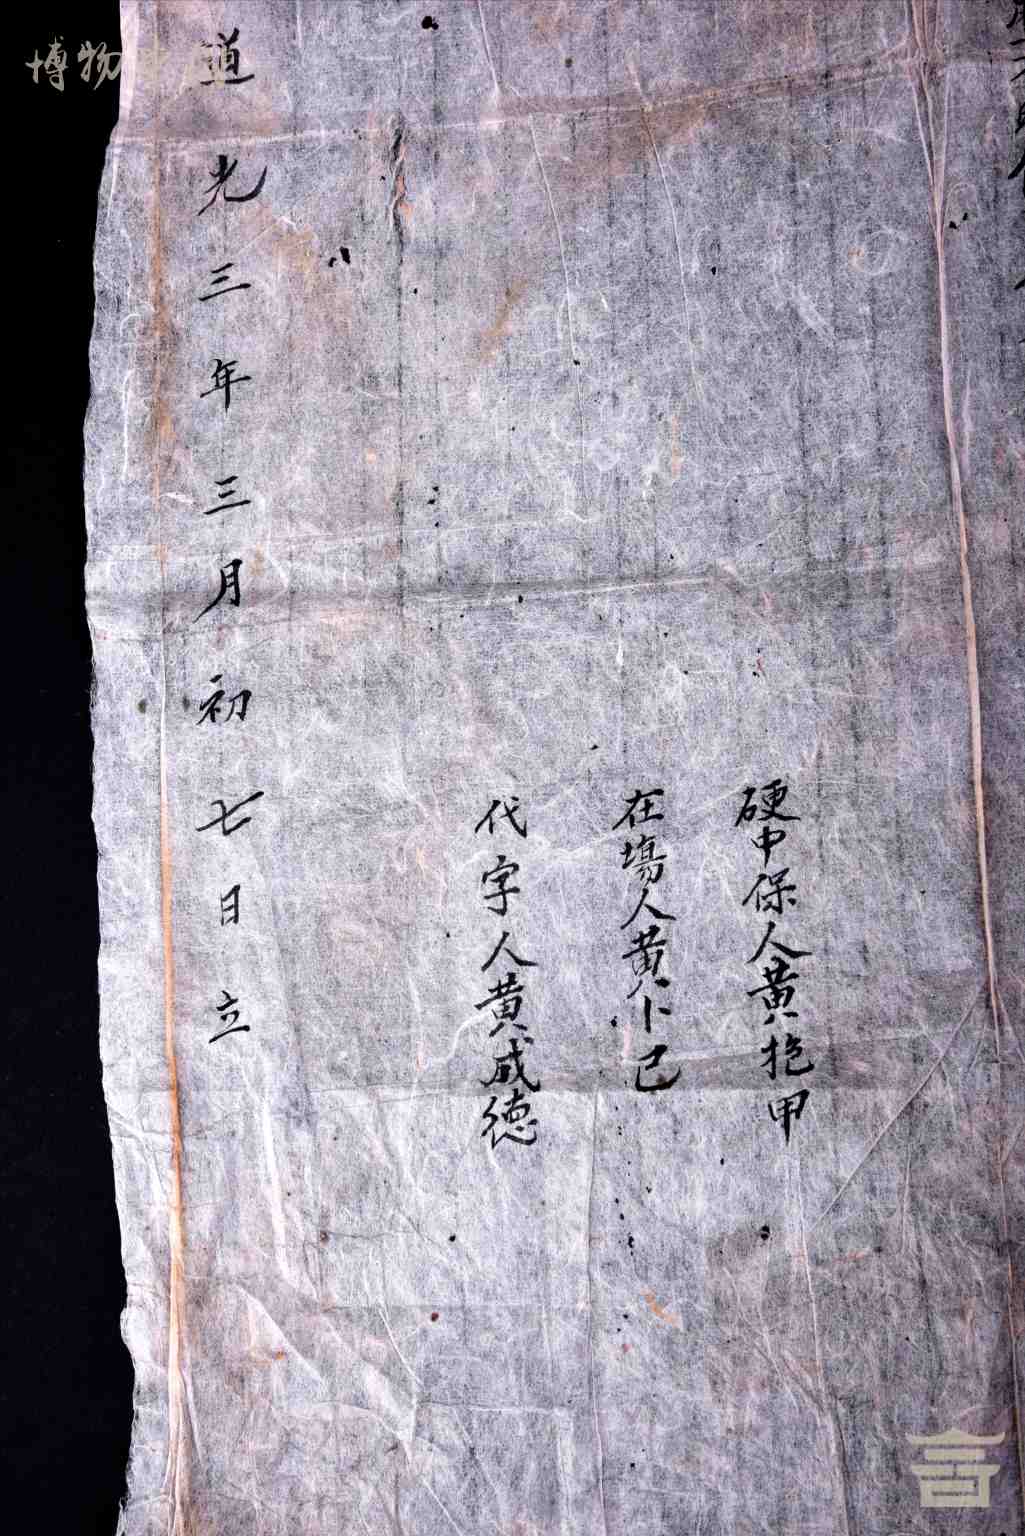 硬中保人黄抱甲
在塲人黄卜已
代字人黄威德
道光三年三月初七日立
博物